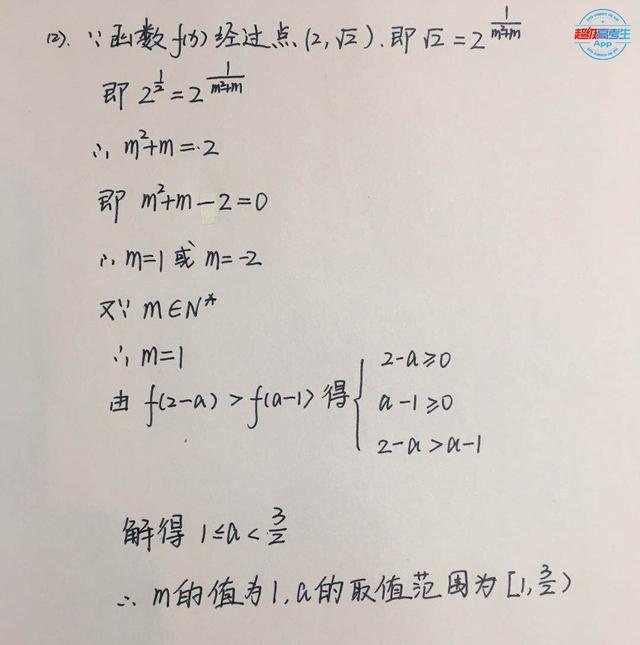 (2). ∵函数f(x)经过点(2,√2).即√2=2^{1/(m²+m)}
即 2^{1/2}=2^{1/(m²+m)}
∴ m²+m=2
即 m²+m-2=0
∴ m=1 或 m=-2
又∵ m∈N*
∴ m=1
由 f(2-a)>f(a-1) 得
2-a≥0
a-1≥0
2-a>a-1
解得 1≤a<3/2
∴ m的值为1,a的取值范围为[1,3/2)
超级高考生
App